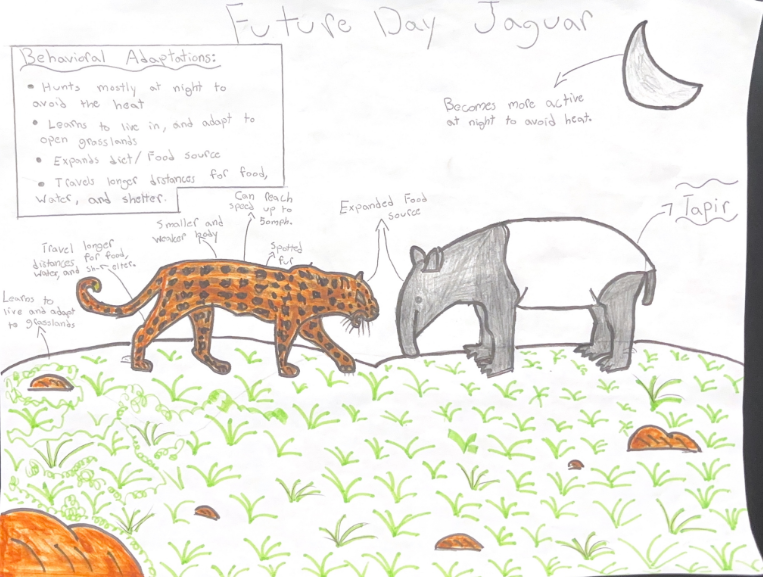 Future Day Jaguar
Behavioral Adaptations:
• Hunts mostly at night to
avoid the heat
• Learns to live in, and adapt to
open grasslands
• Expands diet/Food source
• Travels longer distances for food,
water, and shelter.
Becomes more active
at night to avoid heat.
Can reach
speed up to
50mph.
Expanded Food
Source
Tapir
Smaller and
weaker body
Spotted
fur
Travel longer
distances for food,
water, and shelter.
Learns to
live and adapt
to grasslands